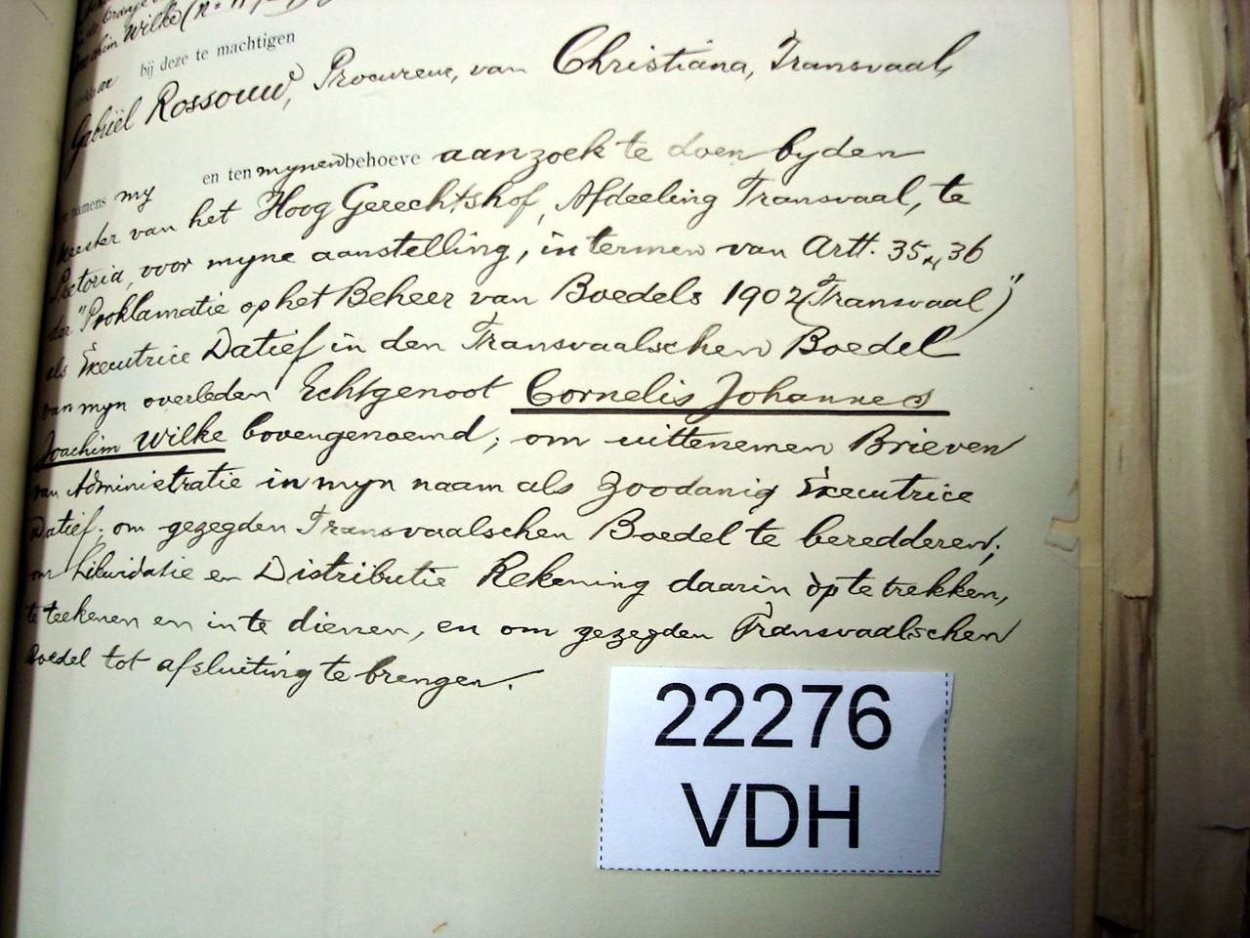 Wilke
bij deze te machtigen
Gabriël Rossouw, Procureur, van Christiana, Transvaal,
namens my en ten mynen behoeve aanzoek te doen byden
Meester van het Hoog Gerechtshof, Afdeeling Transvaal, te
Pretoria, voor myne aanstelling, in termen van Artt. 35 & 36
der "Proklamatie op het Beheer van Boedels 1902 (Transvaal)"
als Executrice Datief in den Transvaalschen Boedel
van myn overleden Echtgenoot Cornelis Johannes
Joachim Wilke bovengenoemd; om uittenemen Brieven
van Administratie in myn naam als zoodanig Executrice
Datief; om gezegden Transvaalschen Boedel te beredderen;
om Likwidatie en Distributie Rekening daarin op te trekken,
te teekenen en in te dienen, en om gezegden Transvaalschen
Boedel tot afsluiting te brengen.
22276
VDH